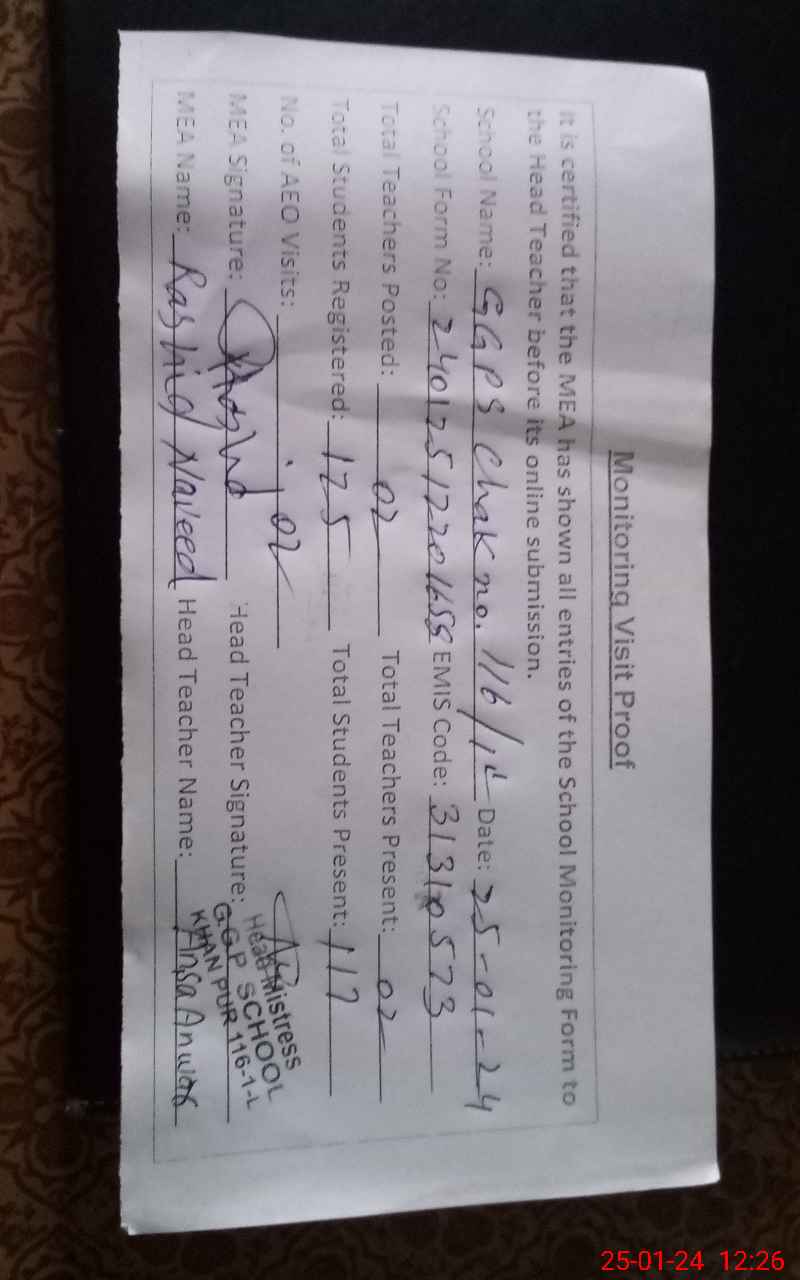 Monitoring Visit Proof
It is certified that the MEA has shown all entries of the School Monitoring Form to
the Head Teacher before its online submission.
School Name: GGPS Chak no. 116/1L Date: 25-01-24
School Form No: EMIS Code: 31310573
Total Teachers Posted: 02 Total Teachers Present: 02
Total Students Registered: 125 Total Students Present: 117
No. of AEO Visits: 02
MEA Signature: Head Teacher Signature:
MEA Name: Rashid Naveed Head Teacher Name: Ansa Anwar
Head Mistress
G.G.P SCHOOL
KHAN PUR 116-1-L
25-01-24 12:26